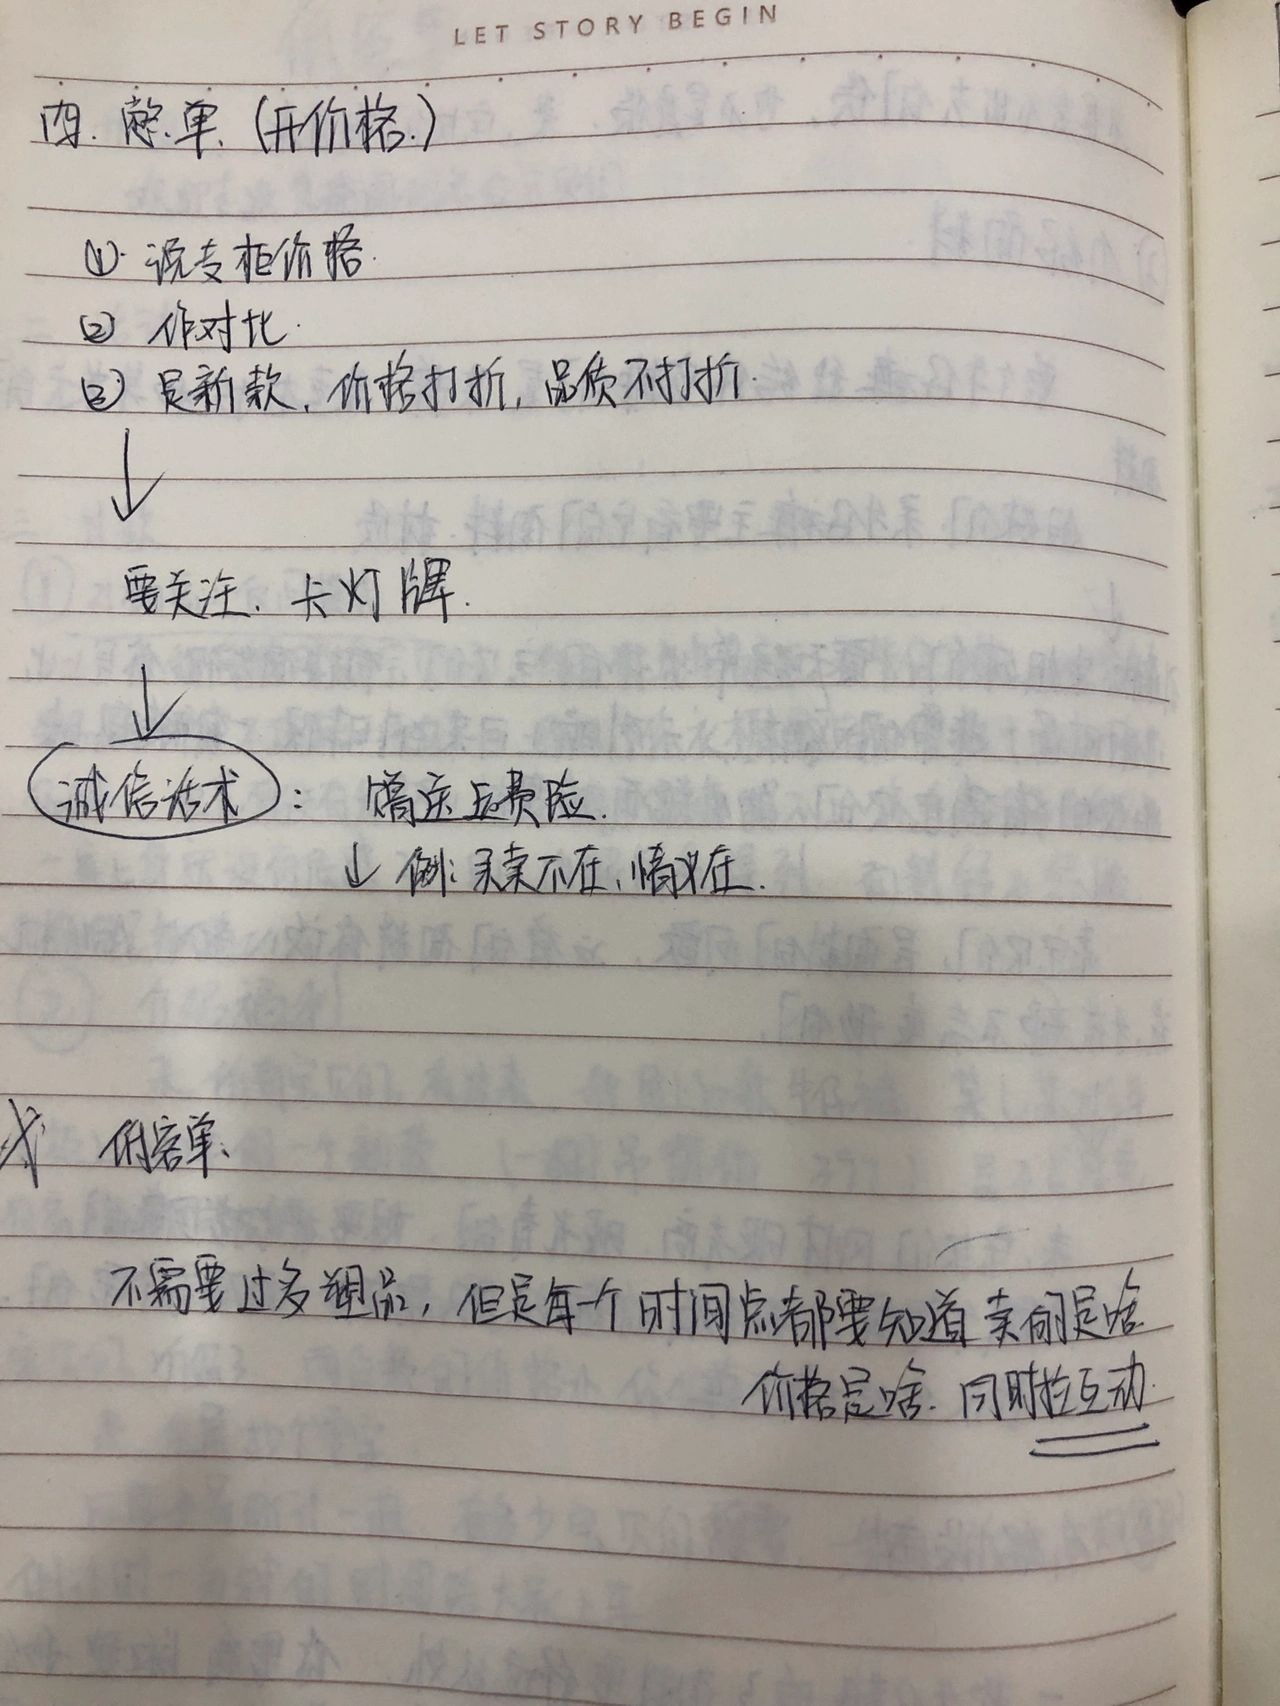 LET STORY BEGIN
四. 憋单 (开价格.)
① 说专柜价格.
② 作对比.
③ 是新款, 价格打折, 品质不打折.
↓
要关注、卡灯牌.
↓
诚信话术: 赠运费险.
↓ 例: 买卖不在, 情义在.
客单、
不需要过多塑品, 但是每一个时间点都要知道卖的是啥
价格是啥. 同时拉互动.